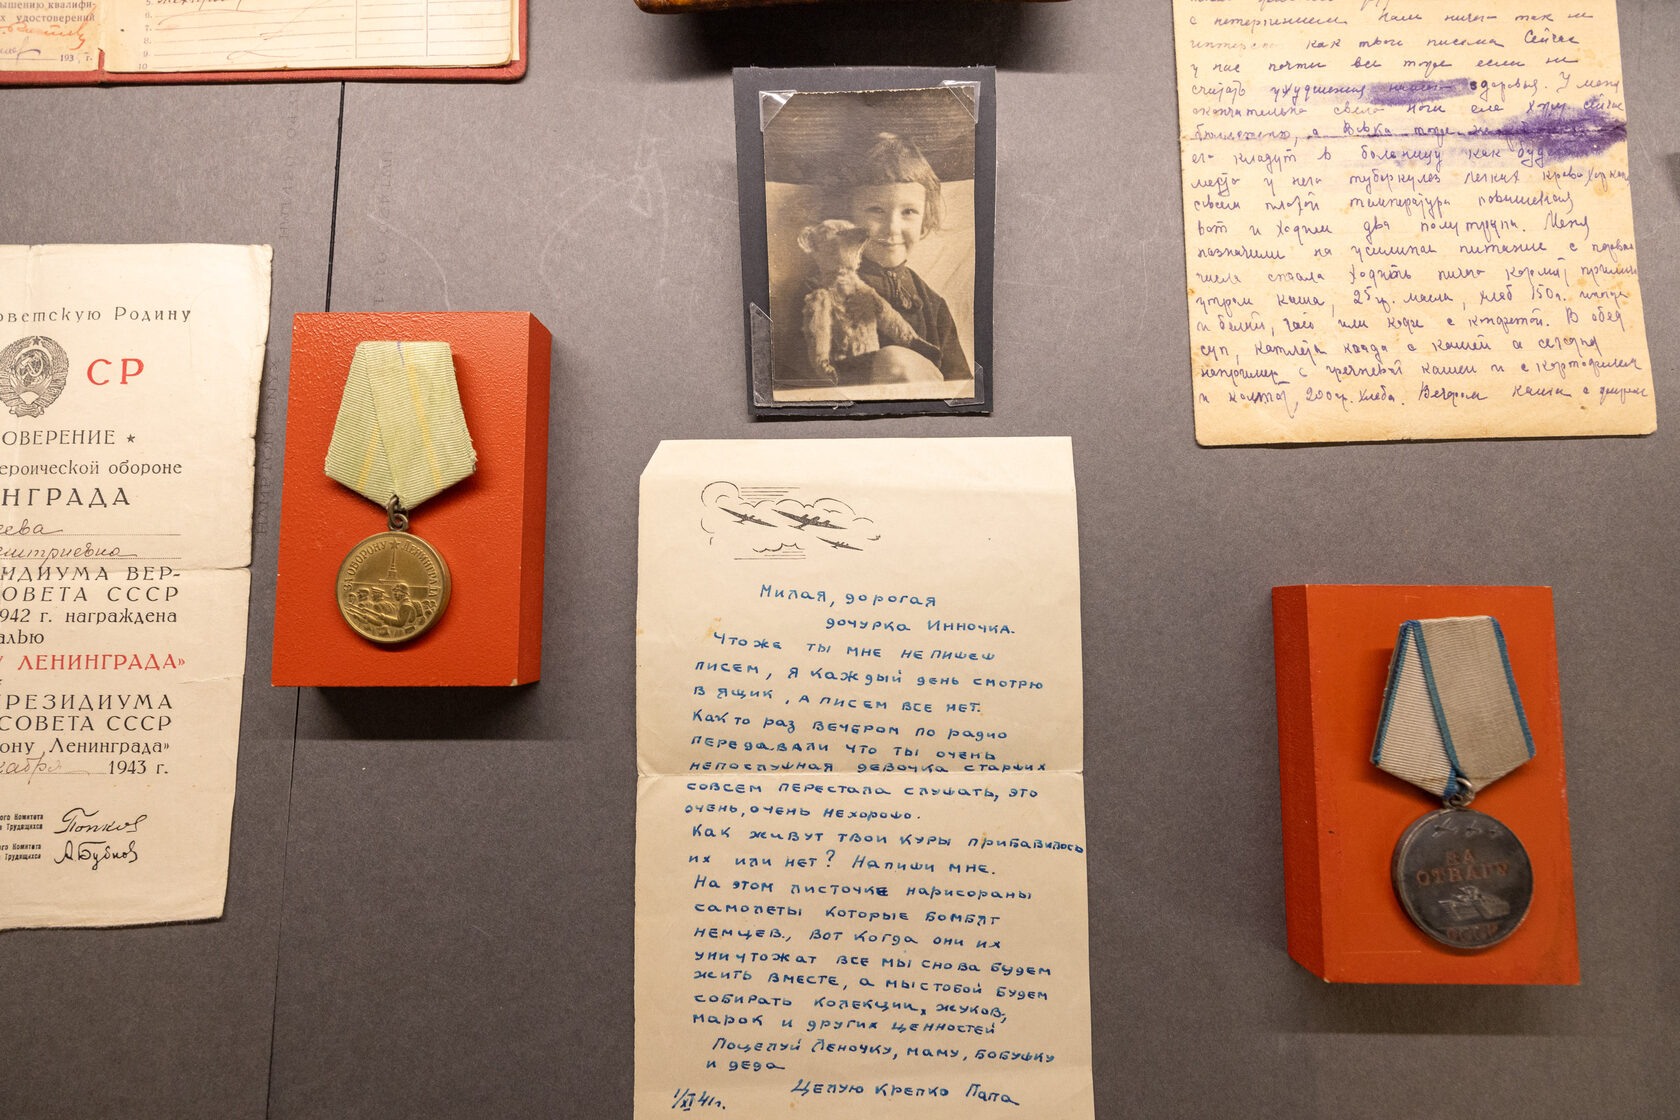 ышению квалифи-
х удостоверений
193 г.
5.
6.
7.
8.
9.
10
оветскую Родину
СР
ОВЕРЕНИЕ ★
ероической обороне
НГРАДА
еева
митриевна
ИДИУМА ВЕР-
ОВЕТА СССР
942 г. награждена
алью
У ЛЕНИНГРАДА»
РЕЗИДИУМА
СОВЕТА СССР
ону Ленинграда»
кабря 1943 г.
ого Комитета
в Трудящихся
Попков
ого Комитета
в Трудящихся
А Бубнов
ЗА ОБОРОНУ ★ ЛЕНИНГРАДА
с нетерпением нам ничего так не
как твои письма Сейчас
у нас почти все тоже если не
считать ухудшения нашего здоровья. У меня
окончательно свело ноги еле хожу сейчас
бюллетеню, а Вовка тоже
его кладут в больницу как
место у него туберкулез легких
совсем плохой температура повышенная
вот и ходим два полутрупа. Меня
назначили на усиленное питание с первого
числа стала ходить
утром каша, 25 гр. масла, хлеб 150 г.
и белый, чай или кофе с конфетой. В обед
суп, котлета когда с кашей а сегодня
например с гречневой кашей и с картофелем
и компот, 200 гр. хлеба. Вечером каша с
Милая, дорогая
дочурка Инночка.
Что же ты мне не пишеш
писем, я каждый день смотрю
в ящик, а писем все нет.
Как то раз вечером по радио
передавали что ты очень
непослушная девочка старших
совсем перестала слушать, это
очень, очень нехорошо.
Как живут твои куры прибавилось
их или нет? Напиши мне.
На этом листочке нарисораны
самолеты которые бомбят
немцев., вот когда они их
уничтожат все мы снова будем
жить вместе, а мы стобой будем
собирать колекции, жуков,
марок и других ценностей
Поцелуй Леночку, маму, бобушку
и деда
Целую крепко Папа
1/XI 41 г.
ЗА
ОТВАГУ
СССР